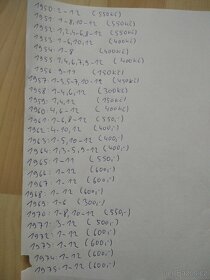 1950: 2-12 (550kč)
1951: 1-8,10-12 (550kč)
1952: 1,2,4-6,8-12 (550kč)
1953: 1-6,10-12 (400kč)
1954: 1-8 (400kč)
1955: 1,4,6,7,9-12 (400kč)
1956: 9-11 (150kč)
1957: 1-3,5-7,10-12 (450kč)
1958: 1-4,6,12 (300kč)
1959: 1,4,12 (150kč)
1960: 4,6-12 (400kč)
1961: 1-6,8-12 (550,-)
1962: 4-10,12 (400,-)
1963: 1-5,10-12 (400,-)
1964: 1,3-5,9-12 (400,-)
1965: 1-11 (550,-)
1966: 1-12 (600,-)
1967: 1-12 (600,-)
1968: 1-12 (600,-)
1969: 1-6 (300,-)
1970: 1-8,10-12 (550,-)
1971: 3-12 (500,-)
1972: 1-12 (600,-)
1973: 1-12 (600,-)
1974: 1-12 (600,-)
1975: 1-12 (600,-)